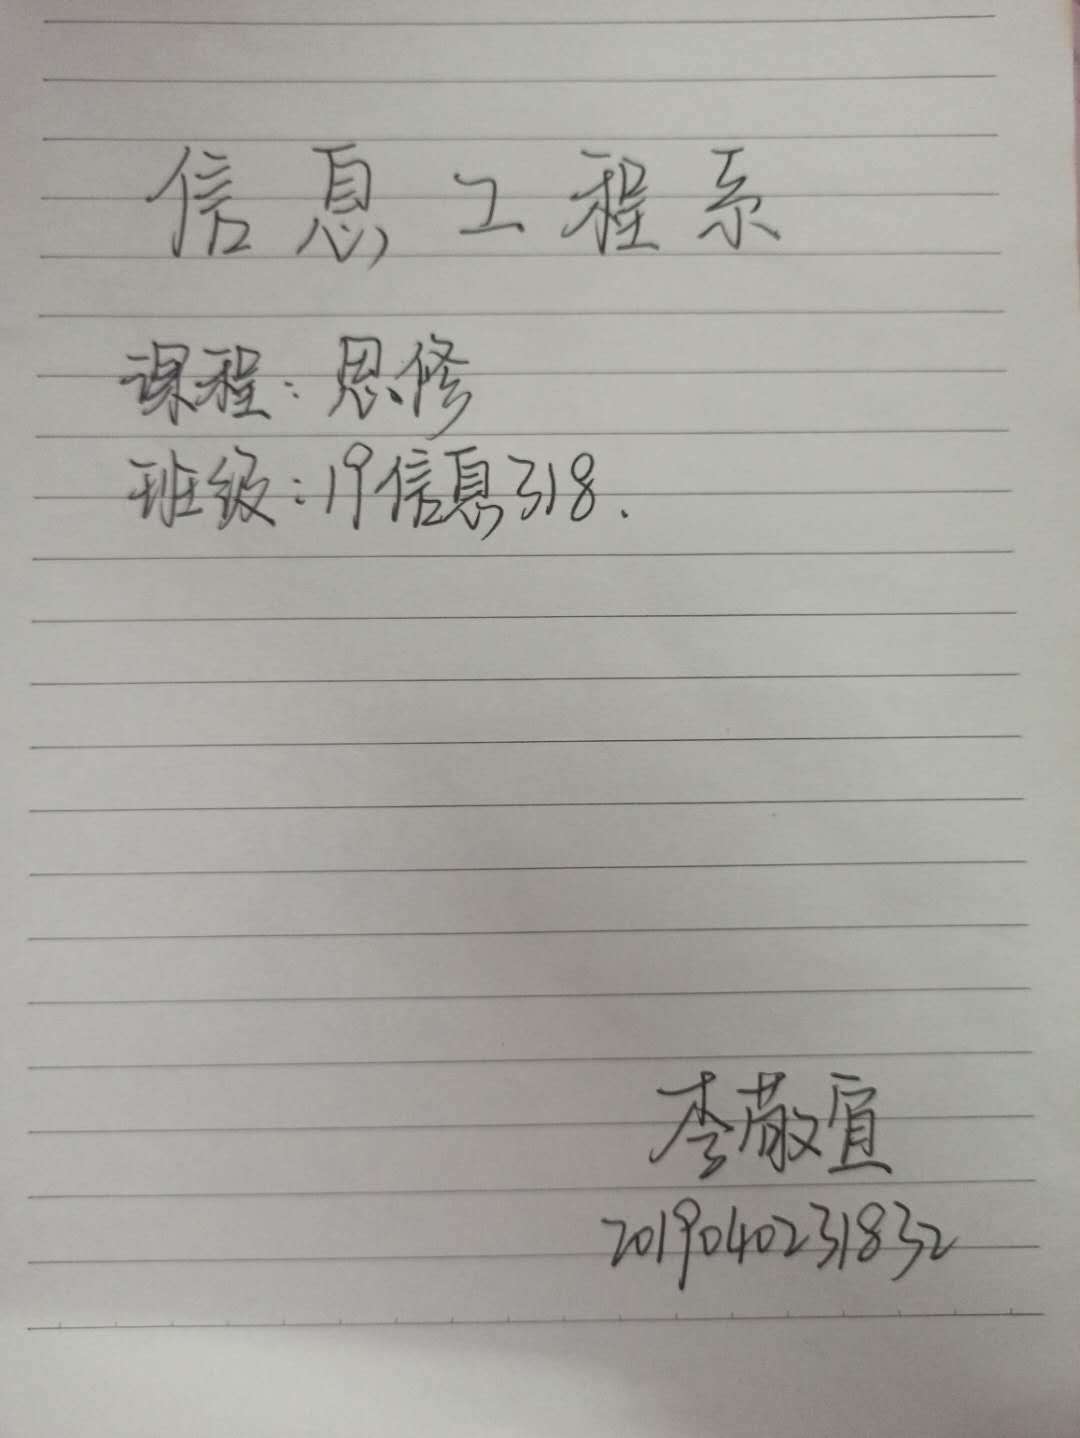 信息工程系
课程:思修
班级:19信息318.
李敬宜
2019040231832